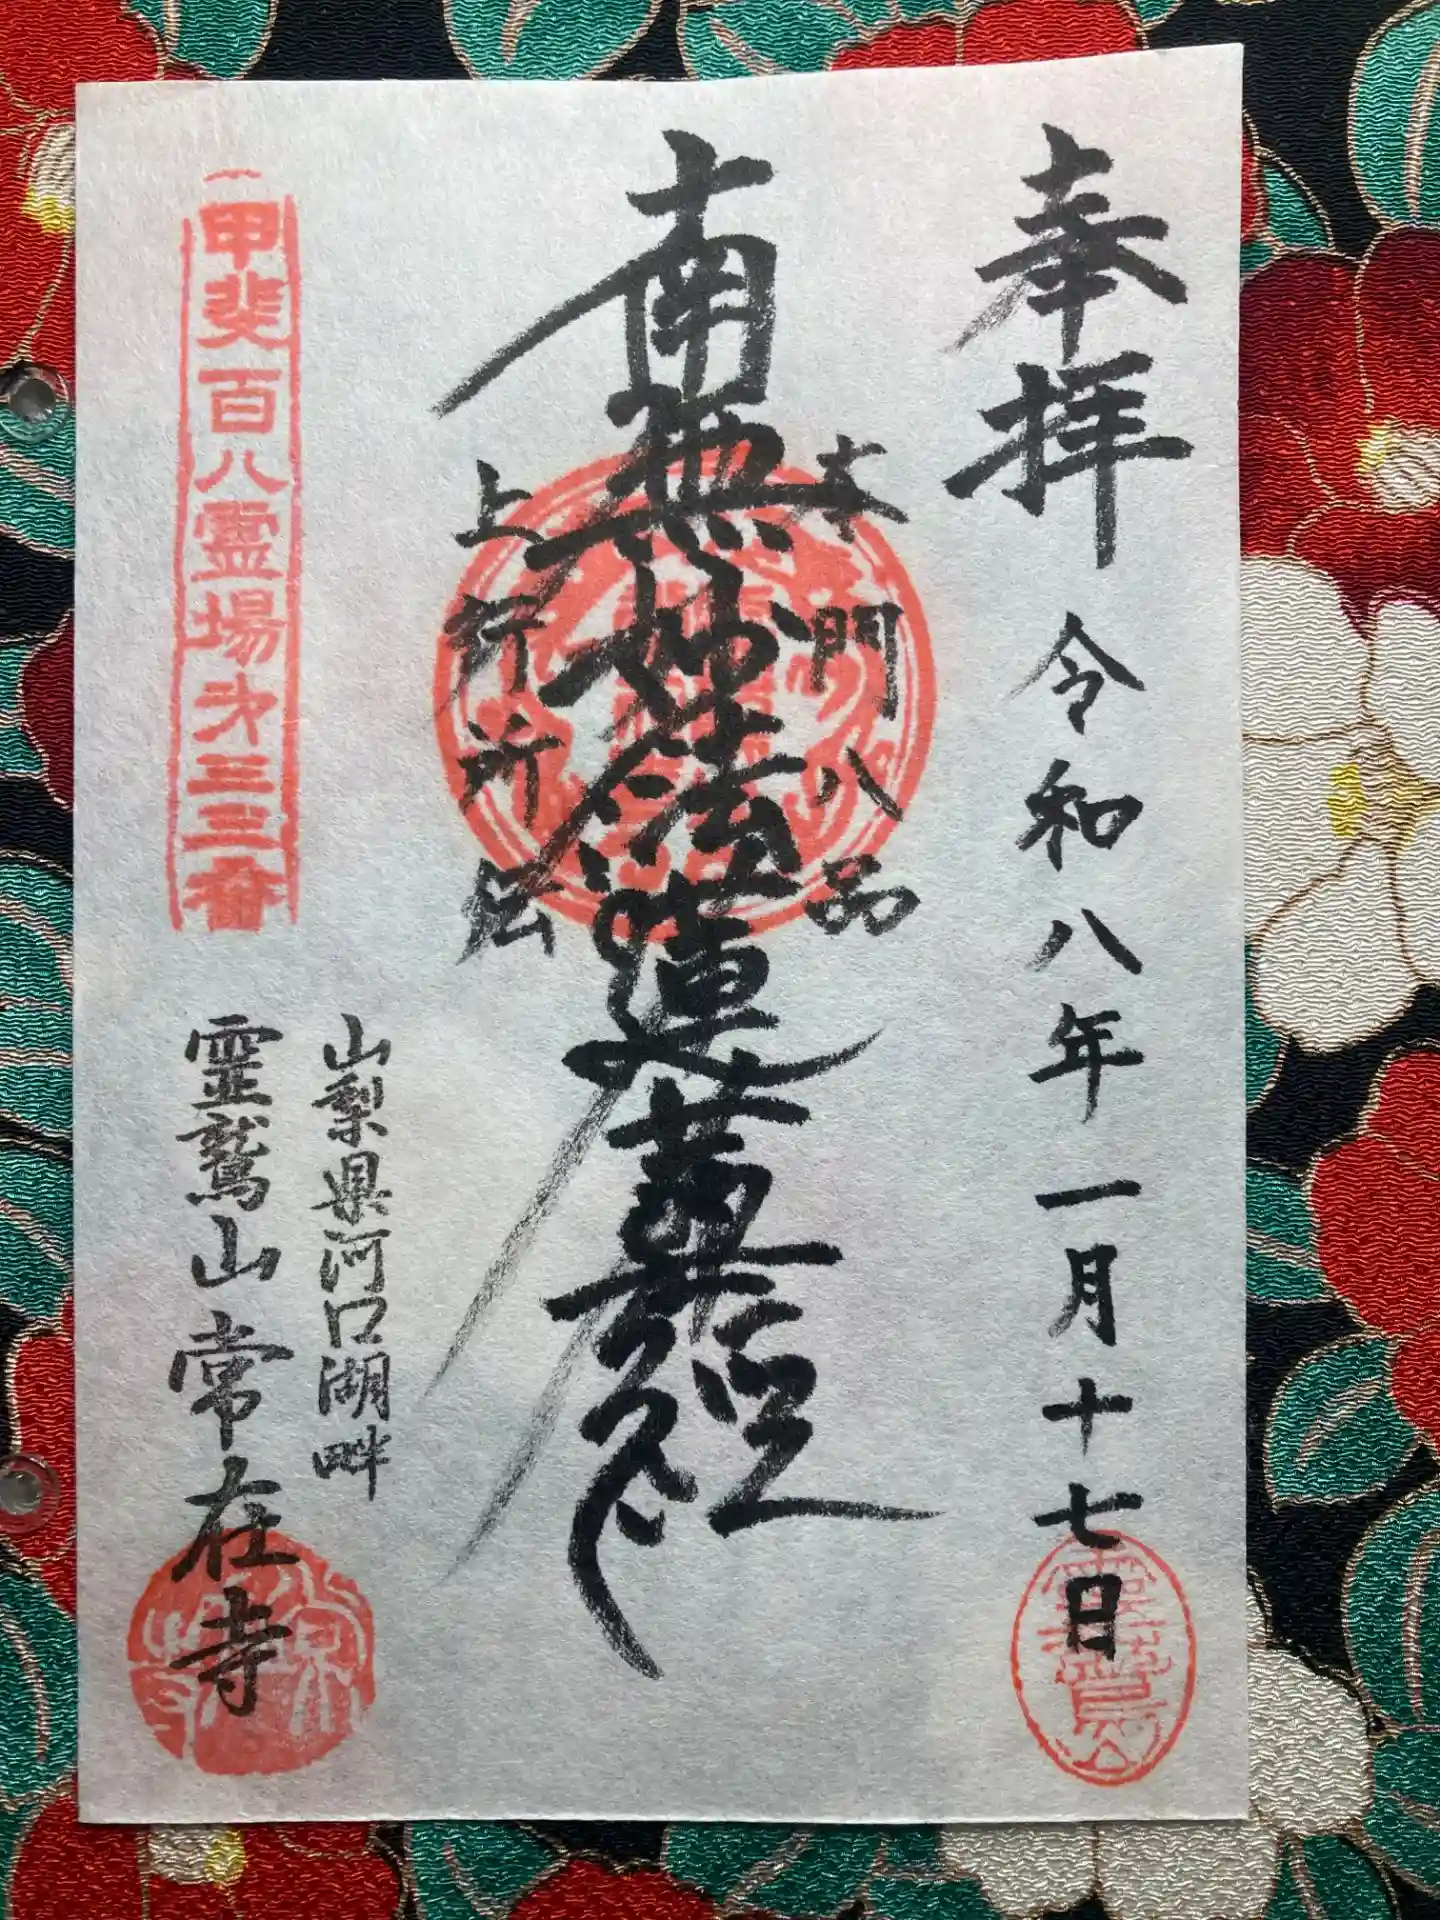 奉拝
令和八年一月十七日
本門八品
南無妙法蓮華経
上行所伝
山梨県河口湖畔
霊鷲山常在寺
甲斐百八霊場第三三番